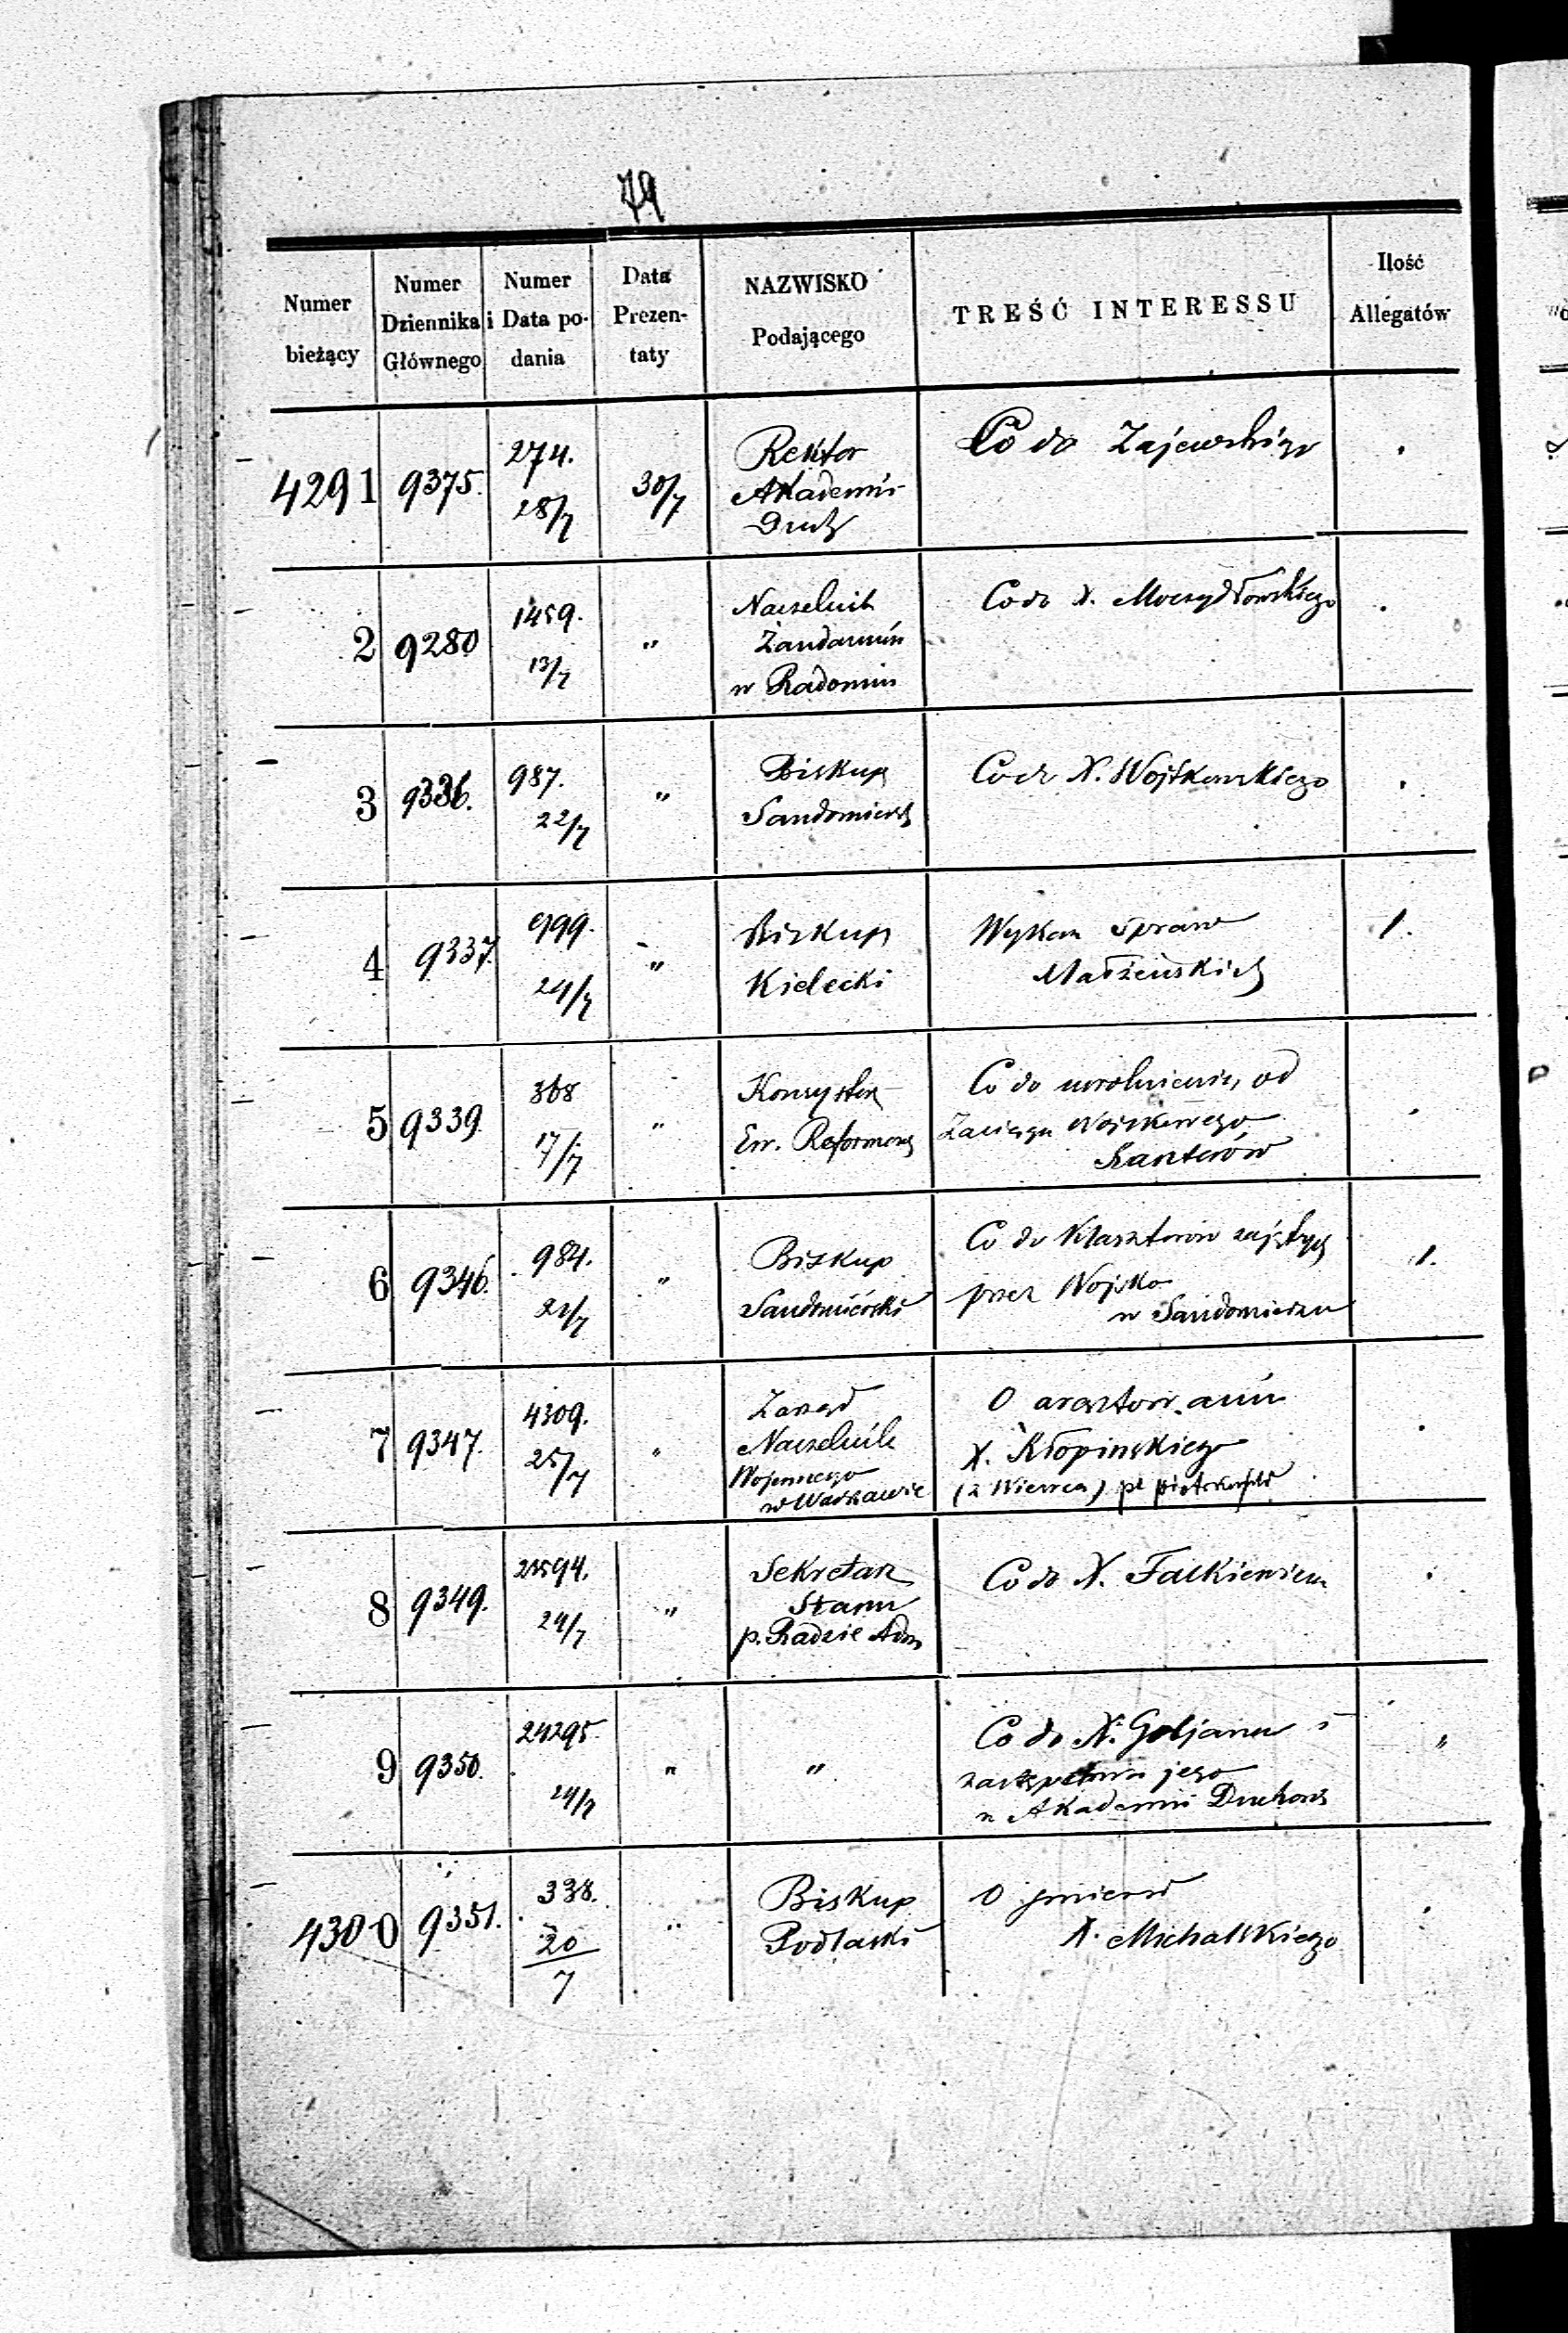 79
Numer bieżący
Numer Dziennika Głównego
Numer i Data podania
Data Prezentaty
NAZWISKO Podającego
TREŚĆ INTERESSU
Ilość Allegatów
4291 9375. 274. 28/7 30/7
Rektor
Akademii
Duch
Co do Zajewskiego
2 9280 1459. 13/7 "
Naczelnik
Żandarmów
w Radomiu
Co do X. Moczydłowskiego
3 9336. 987. 22/7 "
Biskup
Sandomiersk
Co do X. Wojtkowskiego
4 9337. 999. 24/7 "
Biskup
Kielecki
Wykaz spraw
Małżeńskich
1.
5 9339 368 17/7 "
Konsystorz
Ew. Reformow
Co do uwolnienia od
Zaciągu Wojskowego
Kantorów
6 9346. 984. 21/7 "
Biskup
Sandomierski
Co do Klasztorów zajętych
przez Wojsko
w Sandomierzu
1.
7 9347. 4309. 25/7 "
Zarząd
Naczelnik
Wojennego
w Warszawie
O aresztowaniu
X. Kłopinskiego
(z Wiewca) pt piotrkowski
8 9349. 24/7 "
Sekretarz
Stanu
p. Radzie Adm
Co do X. Falkiewicza
9 9350. 24295. 24/7 " "
Co do X. Goljana i
zastępstwa jego
w Akademii Duchown
"
4300 9351. 338. 20/7 "
Biskup
Podlaski
O śmierci
X. Michalskiego